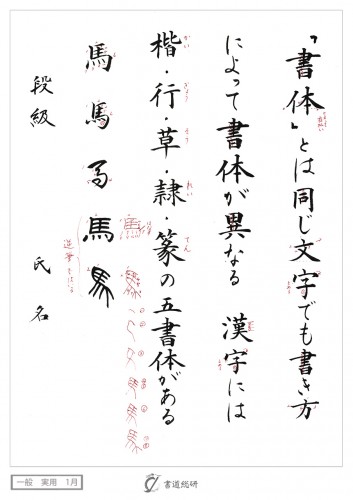 「書体」とは同じ文字でも書き方
によって書体が異なる　漢字には
楷・行・草・隷・篆の五書体がある
かい
ぎょう
そう
れい
てん
馬馬馬馬馬
段級　氏名
一般　実用　1月
書道総研